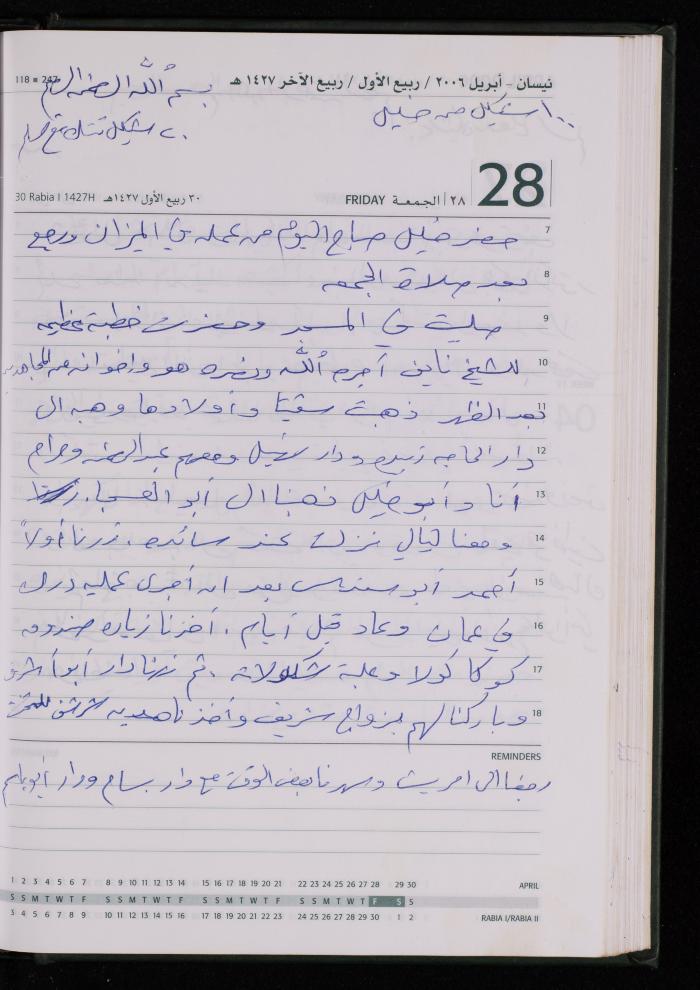 118 ▪ 247
نيسان - أبريل ٢٠٠٦ / ربيع الأول / ربيع الآخر ١٤٢٧ هـ
بسم الله الرحمن الرحيم
١٠٠ شيكل من خليل
٢٠ شيكل
28
30 Rabia I 1427H ٣٠ ربيع الأول ١٤٢٧هـ
FRIDAY الجمعة ٢٨
7 حضر خليل صباح اليوم من عمله في الميزان ورجع
8 بعد صلاة الجمعه
9 صليت في المسجد وحضرت خطبة عظيمه
10 للشيخ نايف آجره الله ونصره هو واخوانه من المجاهدين
11 بعد الظهر ذهبت سفيتا وأولادها وهبه الى
12 دار الحاجه زبيده ودار نبيل ومعهم عبد الرحمن ومرام
13 أنا وأبو خليل ذهبنا الى أبو العسجا.
14 ومعنا ليالي نزلت عند سائده. زرنا أولاً
15 أحمد أبو سندس بعد ان أجرى عمليه درك
16 في عمان وعاد قبل أيام. أخذنا زياره صندوق
17 كوكا كولا وعلبة شكولاته. ثم زرنا دار أبو أشرف
18 وباركنا لهم بزواج شريف وأخذنا هديه
REMINDERS
رجعنا الى امريش وسهرنا بعض الوقت مع دار بسام ودار أبو باسم
1 2 3 4 5 6 7 8 9 10 11 12 13 14 15 16 17 18 19 20 21 22 23 24 25 26 27 28 29 30 APRIL
S S M T W T F S S M T W T F S S M T W T F S S M T W T F S S
3 4 5 6 7 8 9 10 11 12 13 14 15 16 17 18 19 20 21 22 23 24 25 26 27 28 29 30 1 2 RABIA I/RABIA II